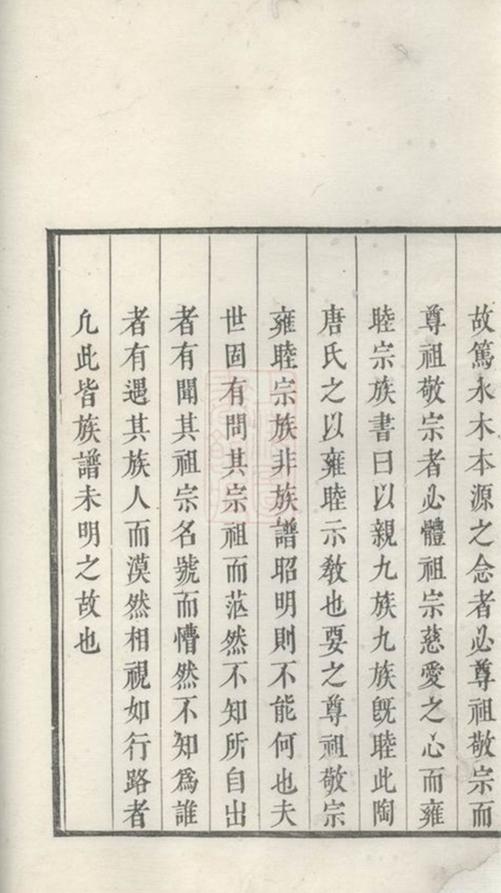 故篤水木本源之念者必尊祖敬宗而
尊祖敬宗者必體祖宗慈愛之心而雍
睦宗族書曰以親九族九族旣睦此陶
唐氏之以雍睦示敎也要之尊祖敬宗
雍睦宗族非族譜昭明則不能何也夫
世固有問其宗祖而茫然不知所自出
者有聞其祖宗名號而懵然不知爲誰
者有遇其族人而漠然相視如行路者
凢此皆族譜未明之故也